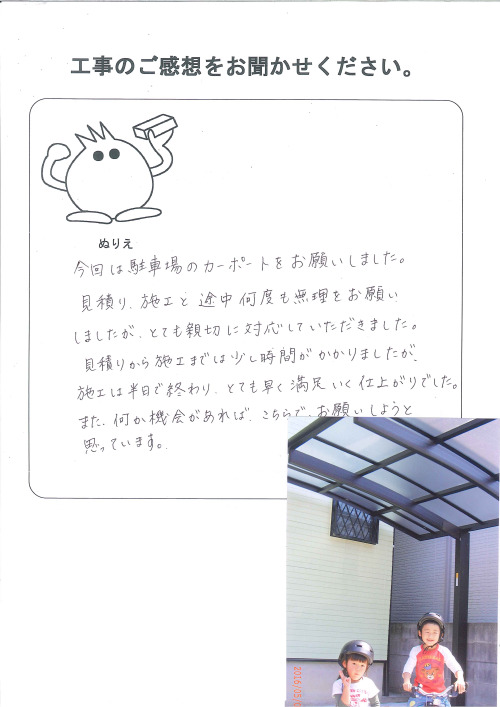 工事のご感想をお聞かせください。
ぬりえ
今回は駐車場のカーポートをお願いしました。
見積り、施工と途中何度も無理をお願い
しましたが、とても親切に対応していただきました。
見積りから施工までは少し時間がかかりましたが、
施工は半日で終わり、とても早く満足いく仕上がりでした。
また、何か機会があれば、こちらで、お願いしようと
思っています。